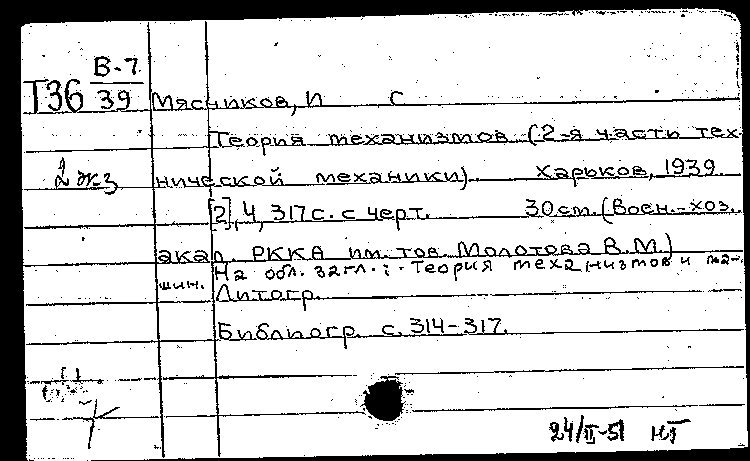 В-7
Т36 39 Мясников, И С
Теория механизмов (2-я часть тех-
2 экз нической механики) Харьков, 1939.
[2], 4, 317 с. с черт. 30 см. (Воен.-хоз.
акад. РККА им. тов. Молотова В.М.)
На обл. загл.: Теория механизмов и ма-
шин.
Литогр.
Библиогр. с. 314-317.
24/II-51 НТ